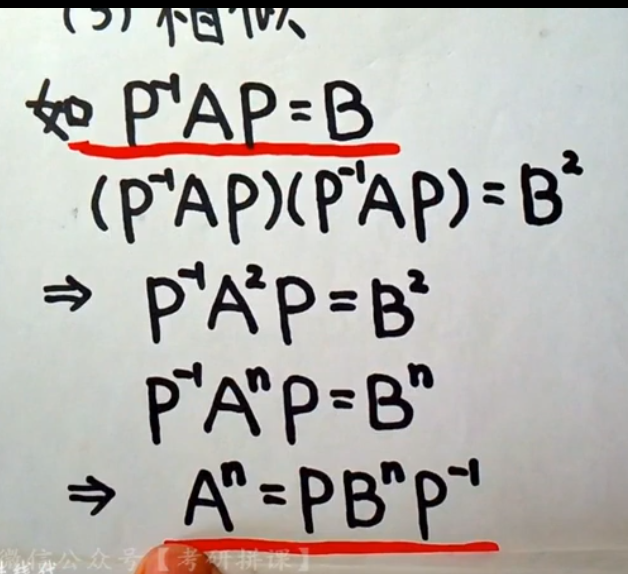 (3) 相似
如 P⁻¹AP = B
(P⁻¹AP)(P⁻¹AP) = B²
⇒ P⁻¹A²P = B²
P⁻¹AⁿP = Bⁿ
⇒ Aⁿ = PBⁿP⁻¹
微信公众号【考研拼课】